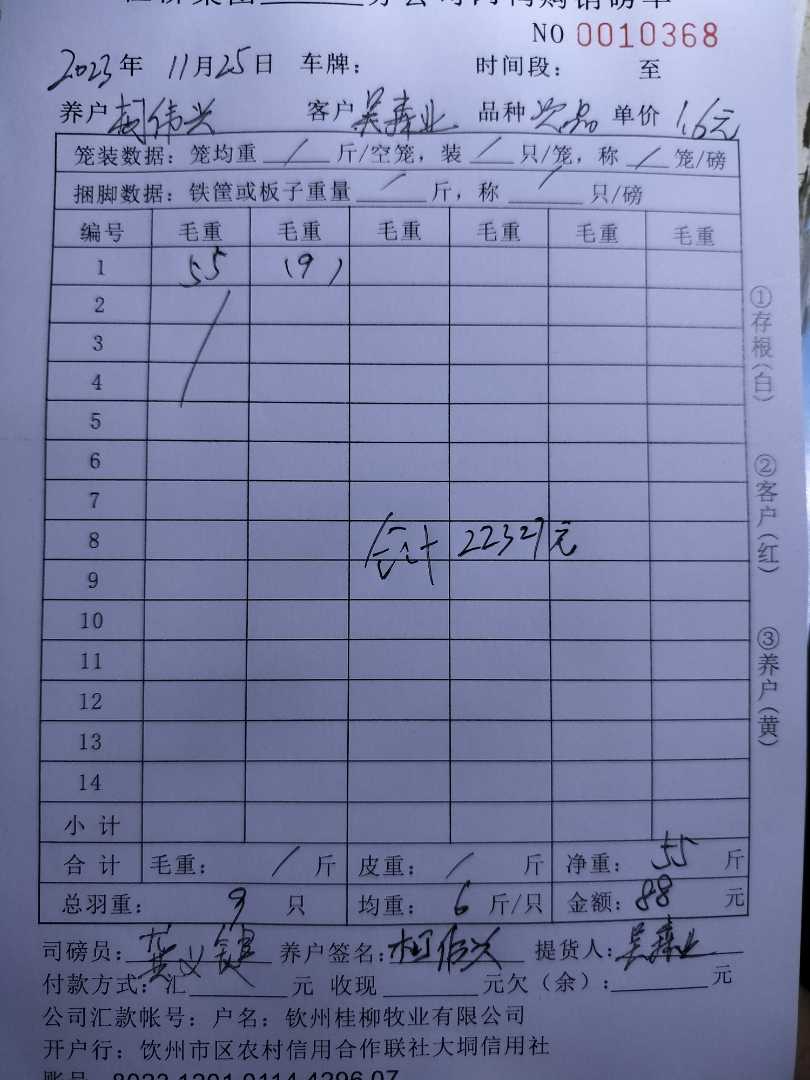 分公司肉鸭购销磅单
NO 0010368
2023年 11月25日 车牌： 时间段： 至
养户 柯伟兴 客户 吴寿业 品种 次品 单价 1.6元
笼装数据：笼均重 / 斤/空笼，装 / 只/笼，称 / 笼/磅
捆脚数据：铁筐或板子重量 / 斤，称 / 只/磅
编号 毛重 毛重 毛重 毛重 毛重 毛重
1 55 (9)
2
3
4
5
6
7
8 合计 22327元
9
10
11
12
13
14
小 计
合 计 毛重： / 斤 皮重： / 斤 净重： 55 斤
总羽重： 9 只 均重： 6 斤/只 金额： 88 元
司磅员： 养户签名：柯伟兴 提货人：吴寿业
付款方式：汇 元 收现 元欠（余）： 元
公司汇款帐号：户名：钦州桂柳牧业有限公司
开户行：钦州市区农村信用合作联社大垌信用社
①存根(白)
②客户(红)
③养户(黄)